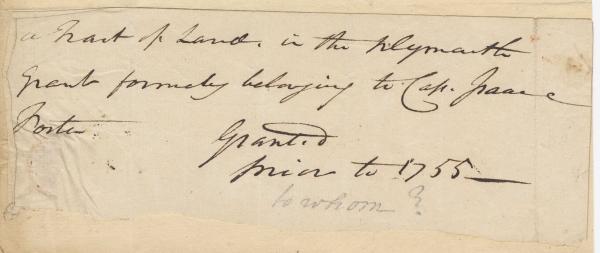 a Tract of Land. in the Plymouth
Grant formerly belonging to Cap. Isaac
Foster
Granted
prior to 1755 —
to whom?